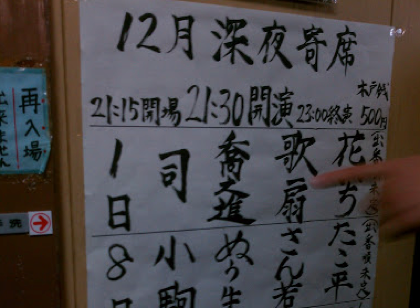 12月 深夜寄席
21:15開場 21:30開演 23:00終演 木戸銭 500円
1日
司
喬之進
歌扇
花ち
8
小駒
ぬう生
さん若
たこ平
再入場
出来ません